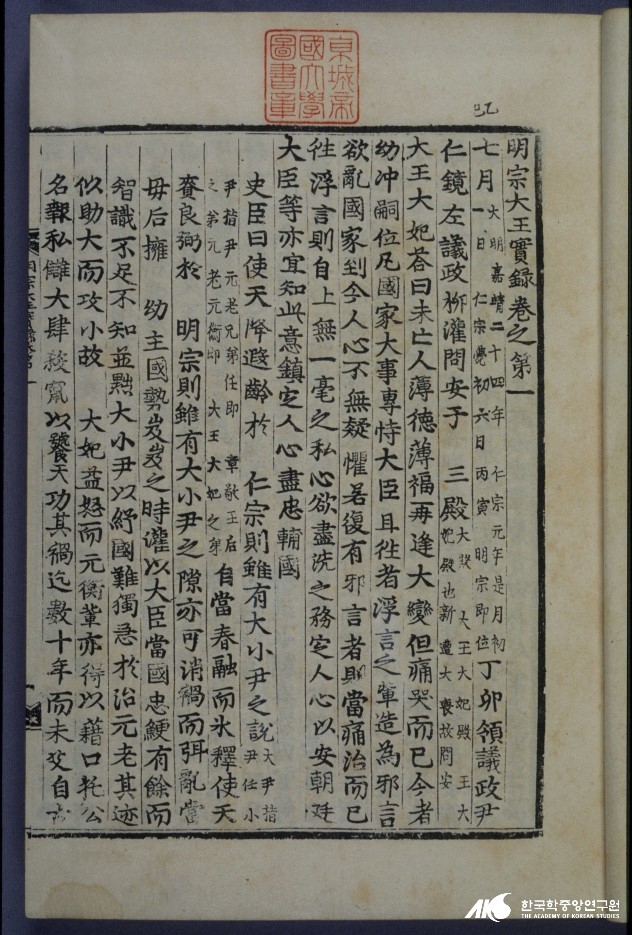 京城帝
國大學
圖書章
乙巳
明宗大王實錄卷之第一
七月大明嘉靖二十四年 仁宗元年是月初一日 仁宗薨初六日丙寅 明宗即位丁卯領議政尹
仁鏡左議政柳灌問安于 三殿大殿 大王大妃殿 王大妃殿也新遭大喪故問安
大王大妃答曰未亡人薄德薄福再逢大變但痛哭而已今者
幼冲嗣位凡國家大事專恃大臣且徃者浮言之輩造為邪言
欲亂國家到今人心不無疑懼若復有邪言者則當痛治而已
徃浮言則自上無一毫之私心欲盡洗之務定人心以安朝廷
大臣等亦宜知此意鎮定人心盡忠輔國
史臣曰使天降遐齡於 仁宗則雖有大小尹之說大尹指尹任小
尹指尹元老兄弟任即 章敬王后之弟元老元衡即 大王大妃之弟自當春融而氷釋使天
賚良弼於 明宗則雖有大小尹之隙亦可消禍而弭亂當
母后擁 幼主國勢岌岌之時灌以大臣當國忠鯁有餘而
智識不足不知並黜大小尹以紓國難獨急於治元老其迹
似助大而攻小故 大妃益怒而元衡輩亦得以藉口托公
名報私讎大肆殺竄以饕天功其禍迄數十年而未艾自古
AKS 한국학중앙연구원
THE ACADEMY OF KOREAN STUDIES